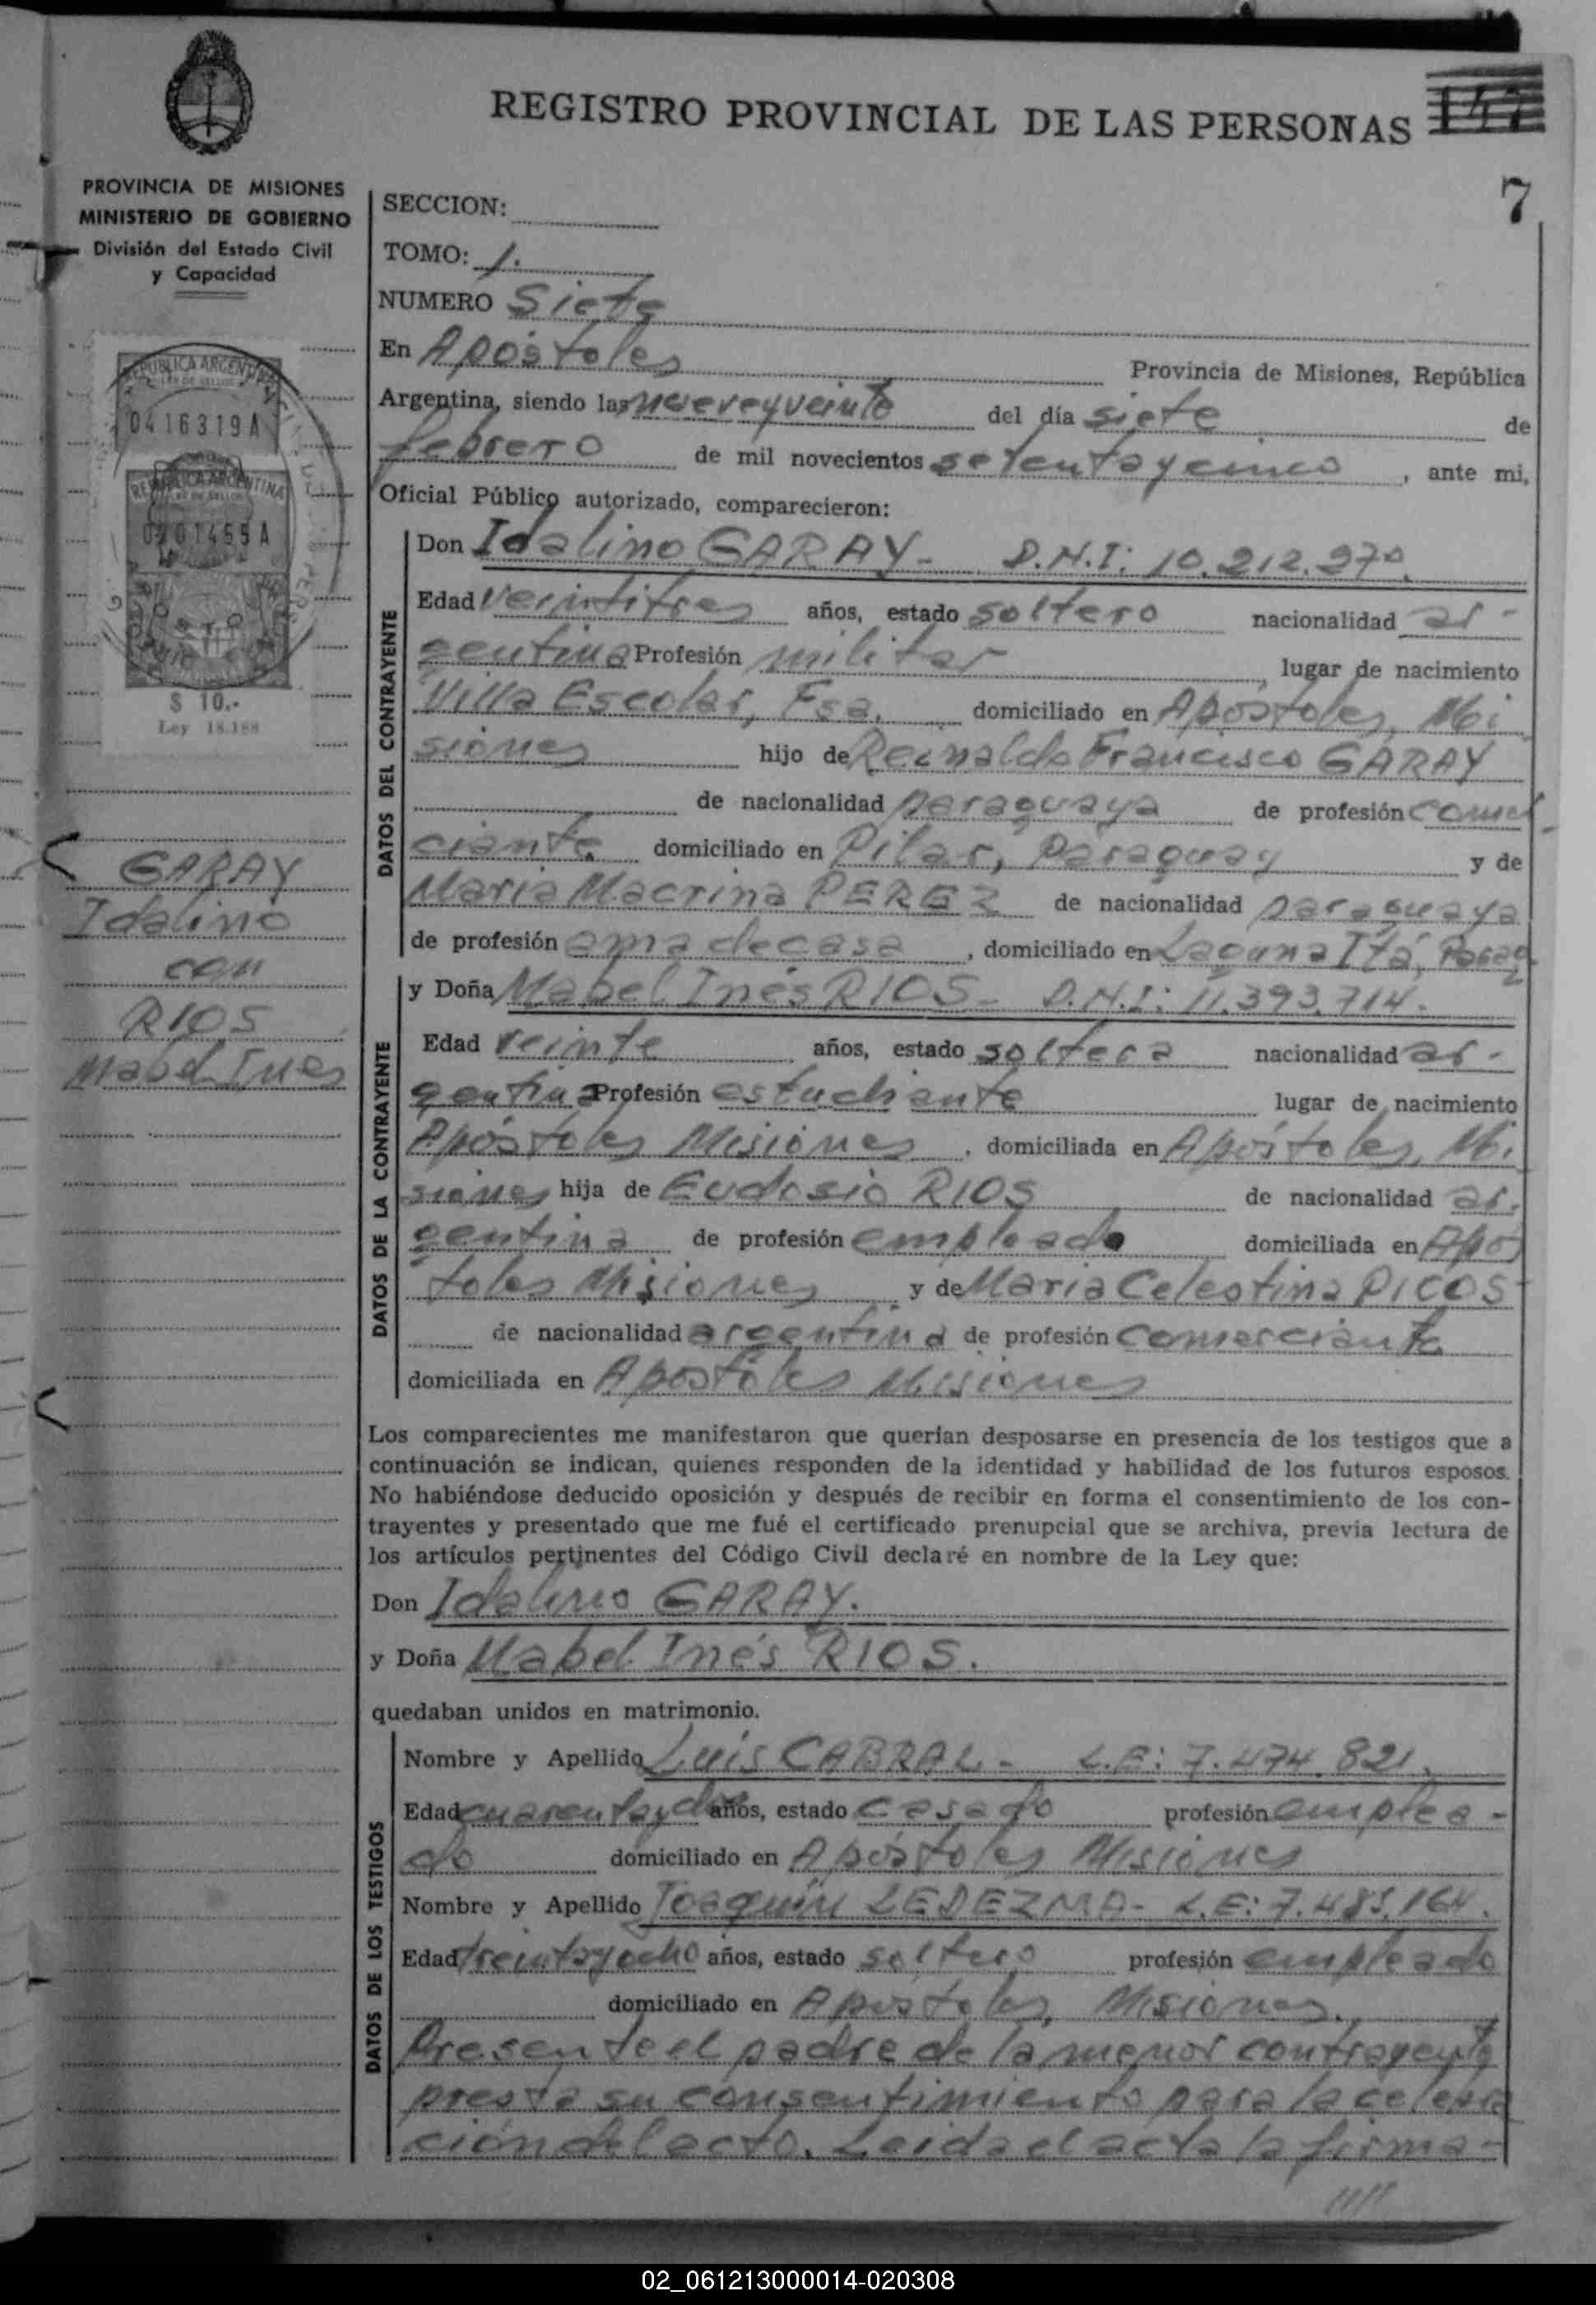 REGISTRO PROVINCIAL DE LAS PERSONAS 147
7
PROVINCIA DE MISIONES
MINISTERIO DE GOBIERNO
División del Estado Civil
y Capacidad
REPUBLICA ARGENTINA
0416319A
REPUBLICA ARGENTINA
$ 10.-
Ley 18.188
GARAY
Idalino
con
RIOS
Mabel Ines
SECCION:
TOMO: 1.
NUMERO Siete
En Apóstoles Provincia de Misiones, República
Argentina, siendo las nueve y veinte del día siete de
febrero de mil novecientos setenta y cinco, ante mi,
Oficial Público autorizado, comparecieron:
DATOS DEL CONTRAYENTE
Don Idalino GARAY - D.N.I: 10.212.970.
Edad veintitres años, estado soltero nacionalidad ar-
gentina Profesión militar, lugar de nacimiento
Villa Escolar, Fsa. domiciliado en Apóstoles, Mi
siones hijo de Reinaldo Francisco GARAY
de nacionalidad paraguaya de profesión comer-
ciante domiciliado en Pilar, Paraguay y de
Maria Macrina PEREZ de nacionalidad paraguaya
de profesión ama de casa, domiciliado en Laguna Itá, Parag
DATOS DE LA CONTRAYENTE
y Doña Mabel Inés RIOS - D.N.I: 11.393.714.
Edad veinte años, estado soltera nacionalidad ar-
gentina Profesión estudiante lugar de nacimiento
Apóstoles Misiones, domiciliada en Apóstoles, Mi
siones hija de Eudosio RIOS de nacionalidad ar-
gentina de profesión empleado domiciliada en Após
toles Misiones y de Maria Celestina RICOS
de nacionalidad argentina de profesión comerciante
domiciliada en Apóstoles Misiones
Los comparecientes me manifestaron que querían desposarse en presencia de los testigos que a
continuación se indican, quienes responden de la identidad y habilidad de los futuros esposos.
No habiéndose deducido oposición y después de recibir en forma el consentimiento de los con-
trayentes y presentado que me fué el certificado prenupcial que se archiva, previa lectura de
los artículos pertinentes del Código Civil declaré en nombre de la Ley que:
Don Idalino GARAY.
y Doña Mabel Inés RIOS.
quedaban unidos en matrimonio.
DATOS DE LOS TESTIGOS
Nombre y Apellido Luis CABRAL - L.E: 7.474.821.
Edad cuarenta y dos años, estado casado profesión emplea-
do domiciliado en Apóstoles Misiones
Nombre y Apellido Joaquín LEDEZMA - L.E: 7.483.164.
Edad treinta y ocho años, estado soltero profesión empleado
domiciliado en Apostoles, Misiones.
Presente el padre de la menor contrayente
presta su consentimiento para la celebra
ción del acto. Leida el acta la firma-
////
02_061213000014-020308